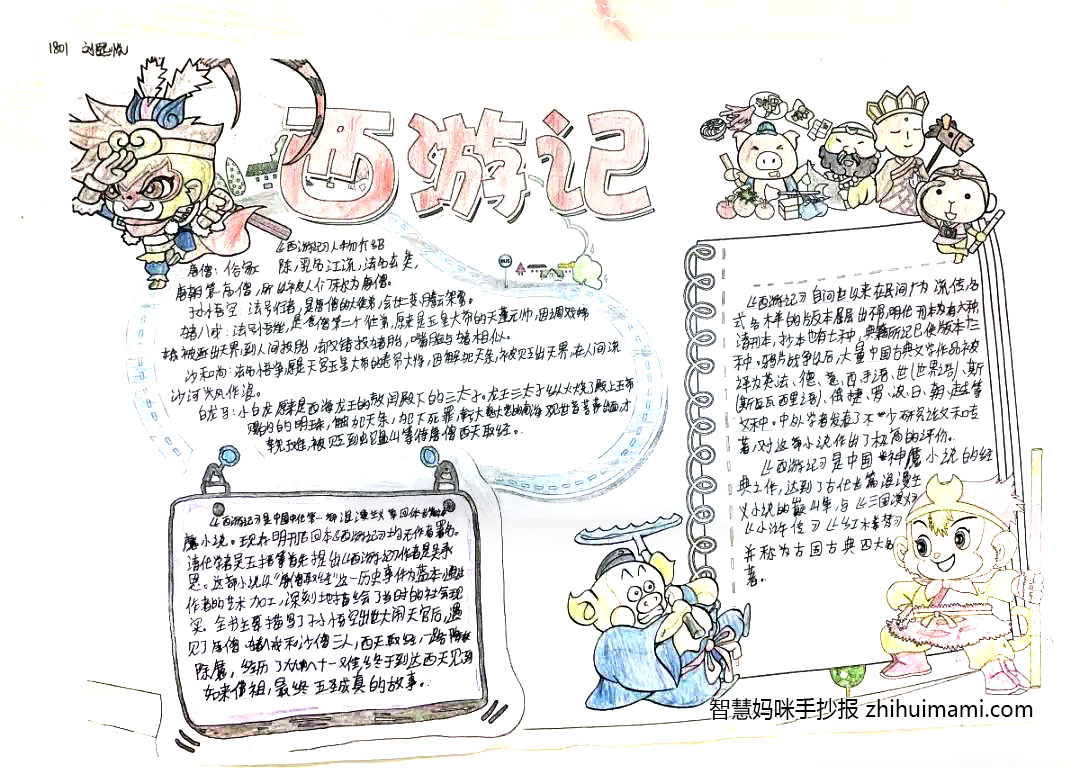 1801 刘
西游记
《西游记》人物介绍
唐僧：俗家 陈，乳名江流，法名玄奘，
唐朝第 高僧，所以被人们称为唐僧。
孙悟空：法号行者，是唐僧的大徒弟，会七十二变、腾云驾雾。
猪八戒：法号悟能，是唐僧第二个徒弟，原来是玉皇大帝的天蓬元帅，因调戏嫦
娥被逐出天界，到人间投胎，却又错投猪胎，嘴脸与猪相似。
沙和尚：法名悟净，原是天宫玉皇大帝的卷帘大将，因触犯天条，被贬出天界，在人间流
沙河兴风作浪。
白龙马：小白龙原来是西海龙王的敖闰殿下的三太子。龙王三太子纵火烧了殿上玉帝
赐的的明珠，触犯天条，犯死罪， 观世音 出面才
幸免于难，被贬到 山等待唐僧西天取经。
《西游记》是中国古代第一部浪漫主义章回体长篇神
魔小说。现存明刊百回本《西游记》均无作者署名。
清代学者吴玉搢等首先提出《西游记》作者是吴承
恩。这部小说以“唐僧取经”这一历史事件为蓝本，通过
作者的艺术加工，深刻地描绘了当时的社会现
实。全书主要描写了孙悟空出世大闹天宫后，遇
见了唐僧、猪八戒和沙僧三人，西天取经，一路降妖
除魔，经历了九九八十一难终于到达西天见到
如来佛祖，最终五圣成真的故事。
《西游记》自问世以来在民间广为流传，各
式各样的版本层出不穷，明代刊本有六种，
清刊本，抄本也有七种，典籍所记已佚版本十三
种。鸦片战争以后，大量中国古典文学作品被
译为英、法、德、意、西、手语、世（世界语）、斯
（斯瓦西里语）、俄、捷、罗、波、日、朝、越等
文种。中外学者发表了不少研究论文和专
著，对这部小说作出了极高的评价。
《西游记》是中国神魔小说的经
典之作，达到了古代长篇浪漫主
义小说的巅峰，与《三国演义》
《水浒传》《红楼梦》
并称为古国古典四大名
著。
BUS
智慧妈咪手抄报 zhihuimami.com